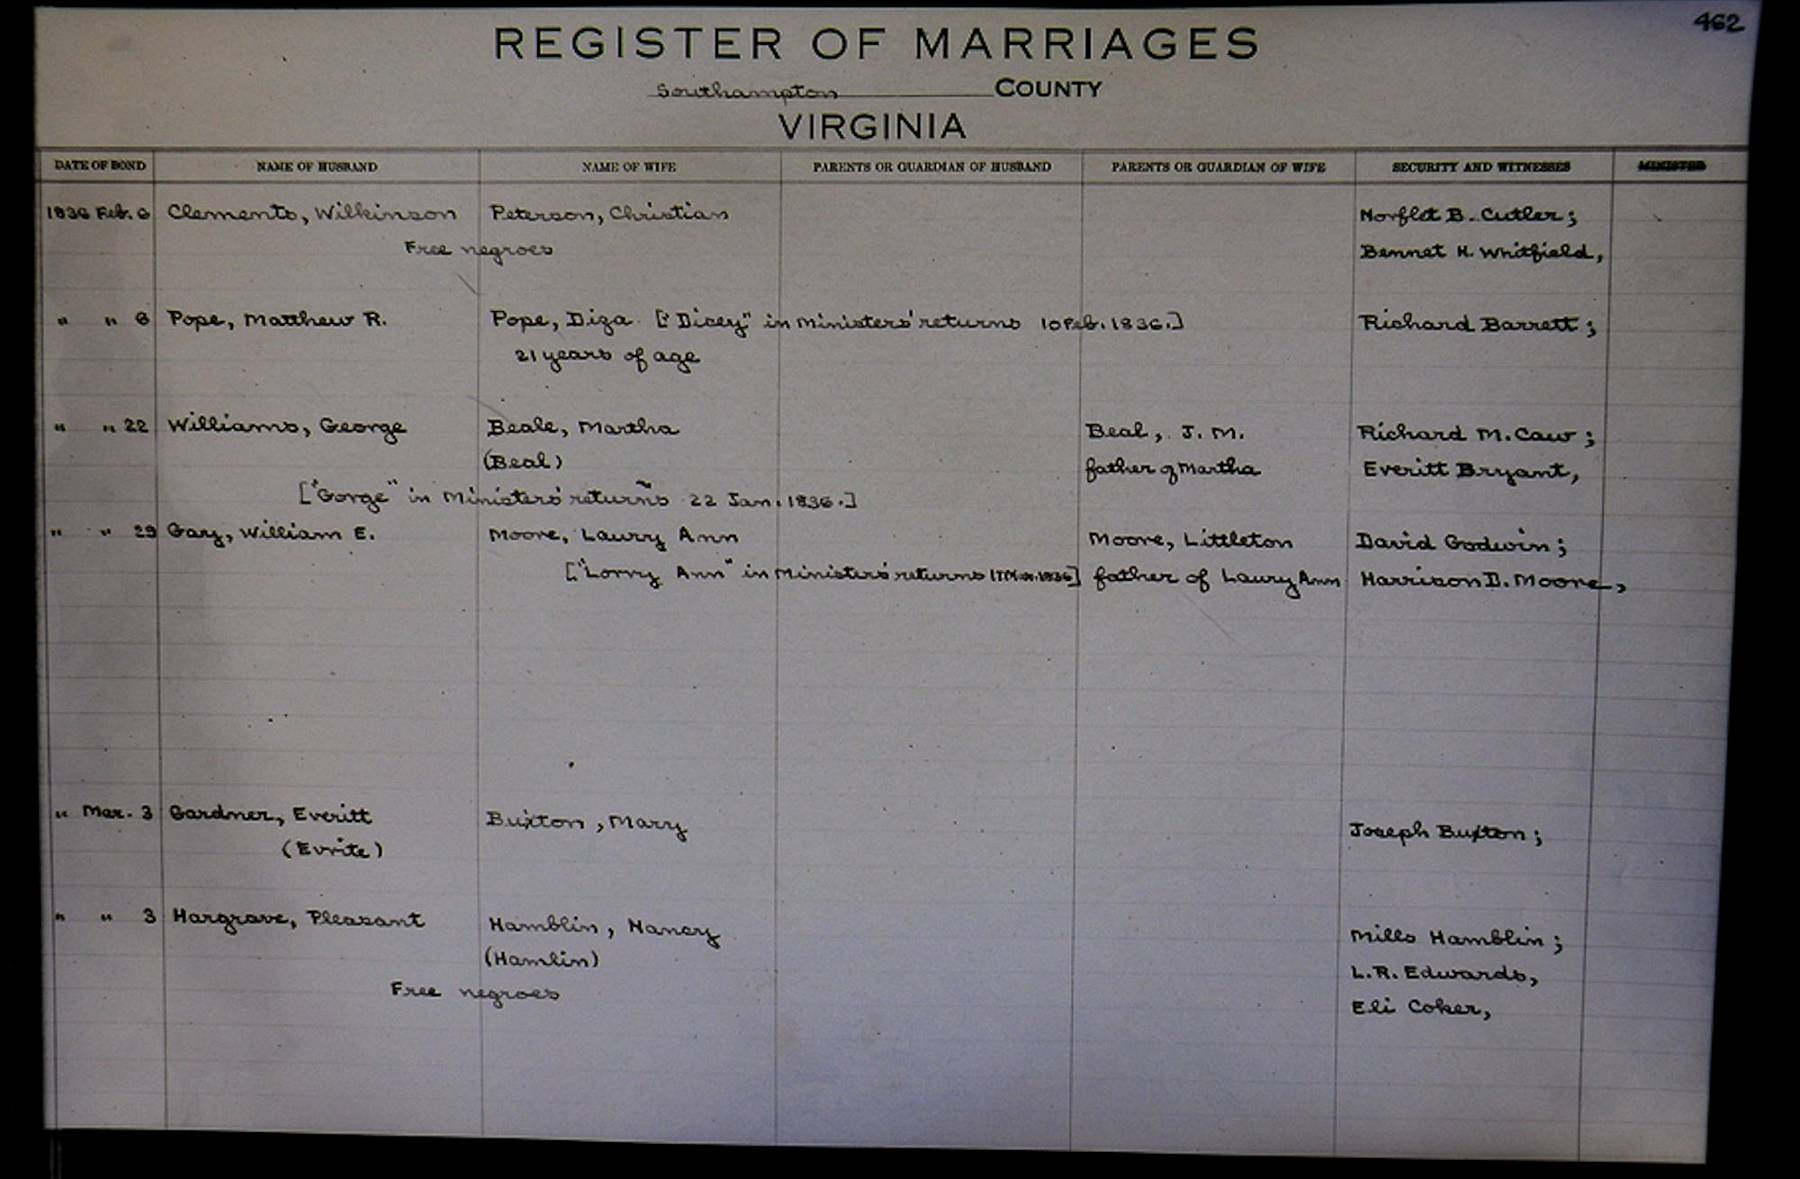 462
REGISTER OF MARRIAGES
Southampton COUNTY
VIRGINIA
DATE OF BOND NAME OF HUSBAND NAME OF WIFE PARENTS OR GUARDIAN OF HUSBAND PARENTS OR GUARDIAN OF WIFE SECURITY AND WITNESSES MINISTER
1836 Feb. 6 Clements, Wilkinson Peterson, Christian Norflet B. Cutler;
Free negroes Bennet H. Whitfield,
" " 6 Pope, Matthew R. Pope, Diza ["Dicey" in Ministers' returns 10 Feb. 1836.] Richard Barrett;
21 years of age
" " 22 Williams, George Beale, Martha Beal, J. M. Richard M. Caw;
(Beal) father of Martha Everitt Bryant,
["Gorge" in Ministers' returns 22 Jan. 1836.]
" " 29 Gary, William E. Moore, Laury Ann Moore, Littleton David Godwin;
["Lorry Ann" in Ministers' returns 1 Mar. 1836] father of Laury Ann Harrison D. Moore,
" Mar. 3 Gardner, Everitt Buxton, Mary Joseph Buxton;
(Evrite)
" " 3 Hargrave, Pleasant Hamblin, Nancy Mills Hamblin;
(Hamlin) L.R. Edwards,
Free negroes Eli Coker,